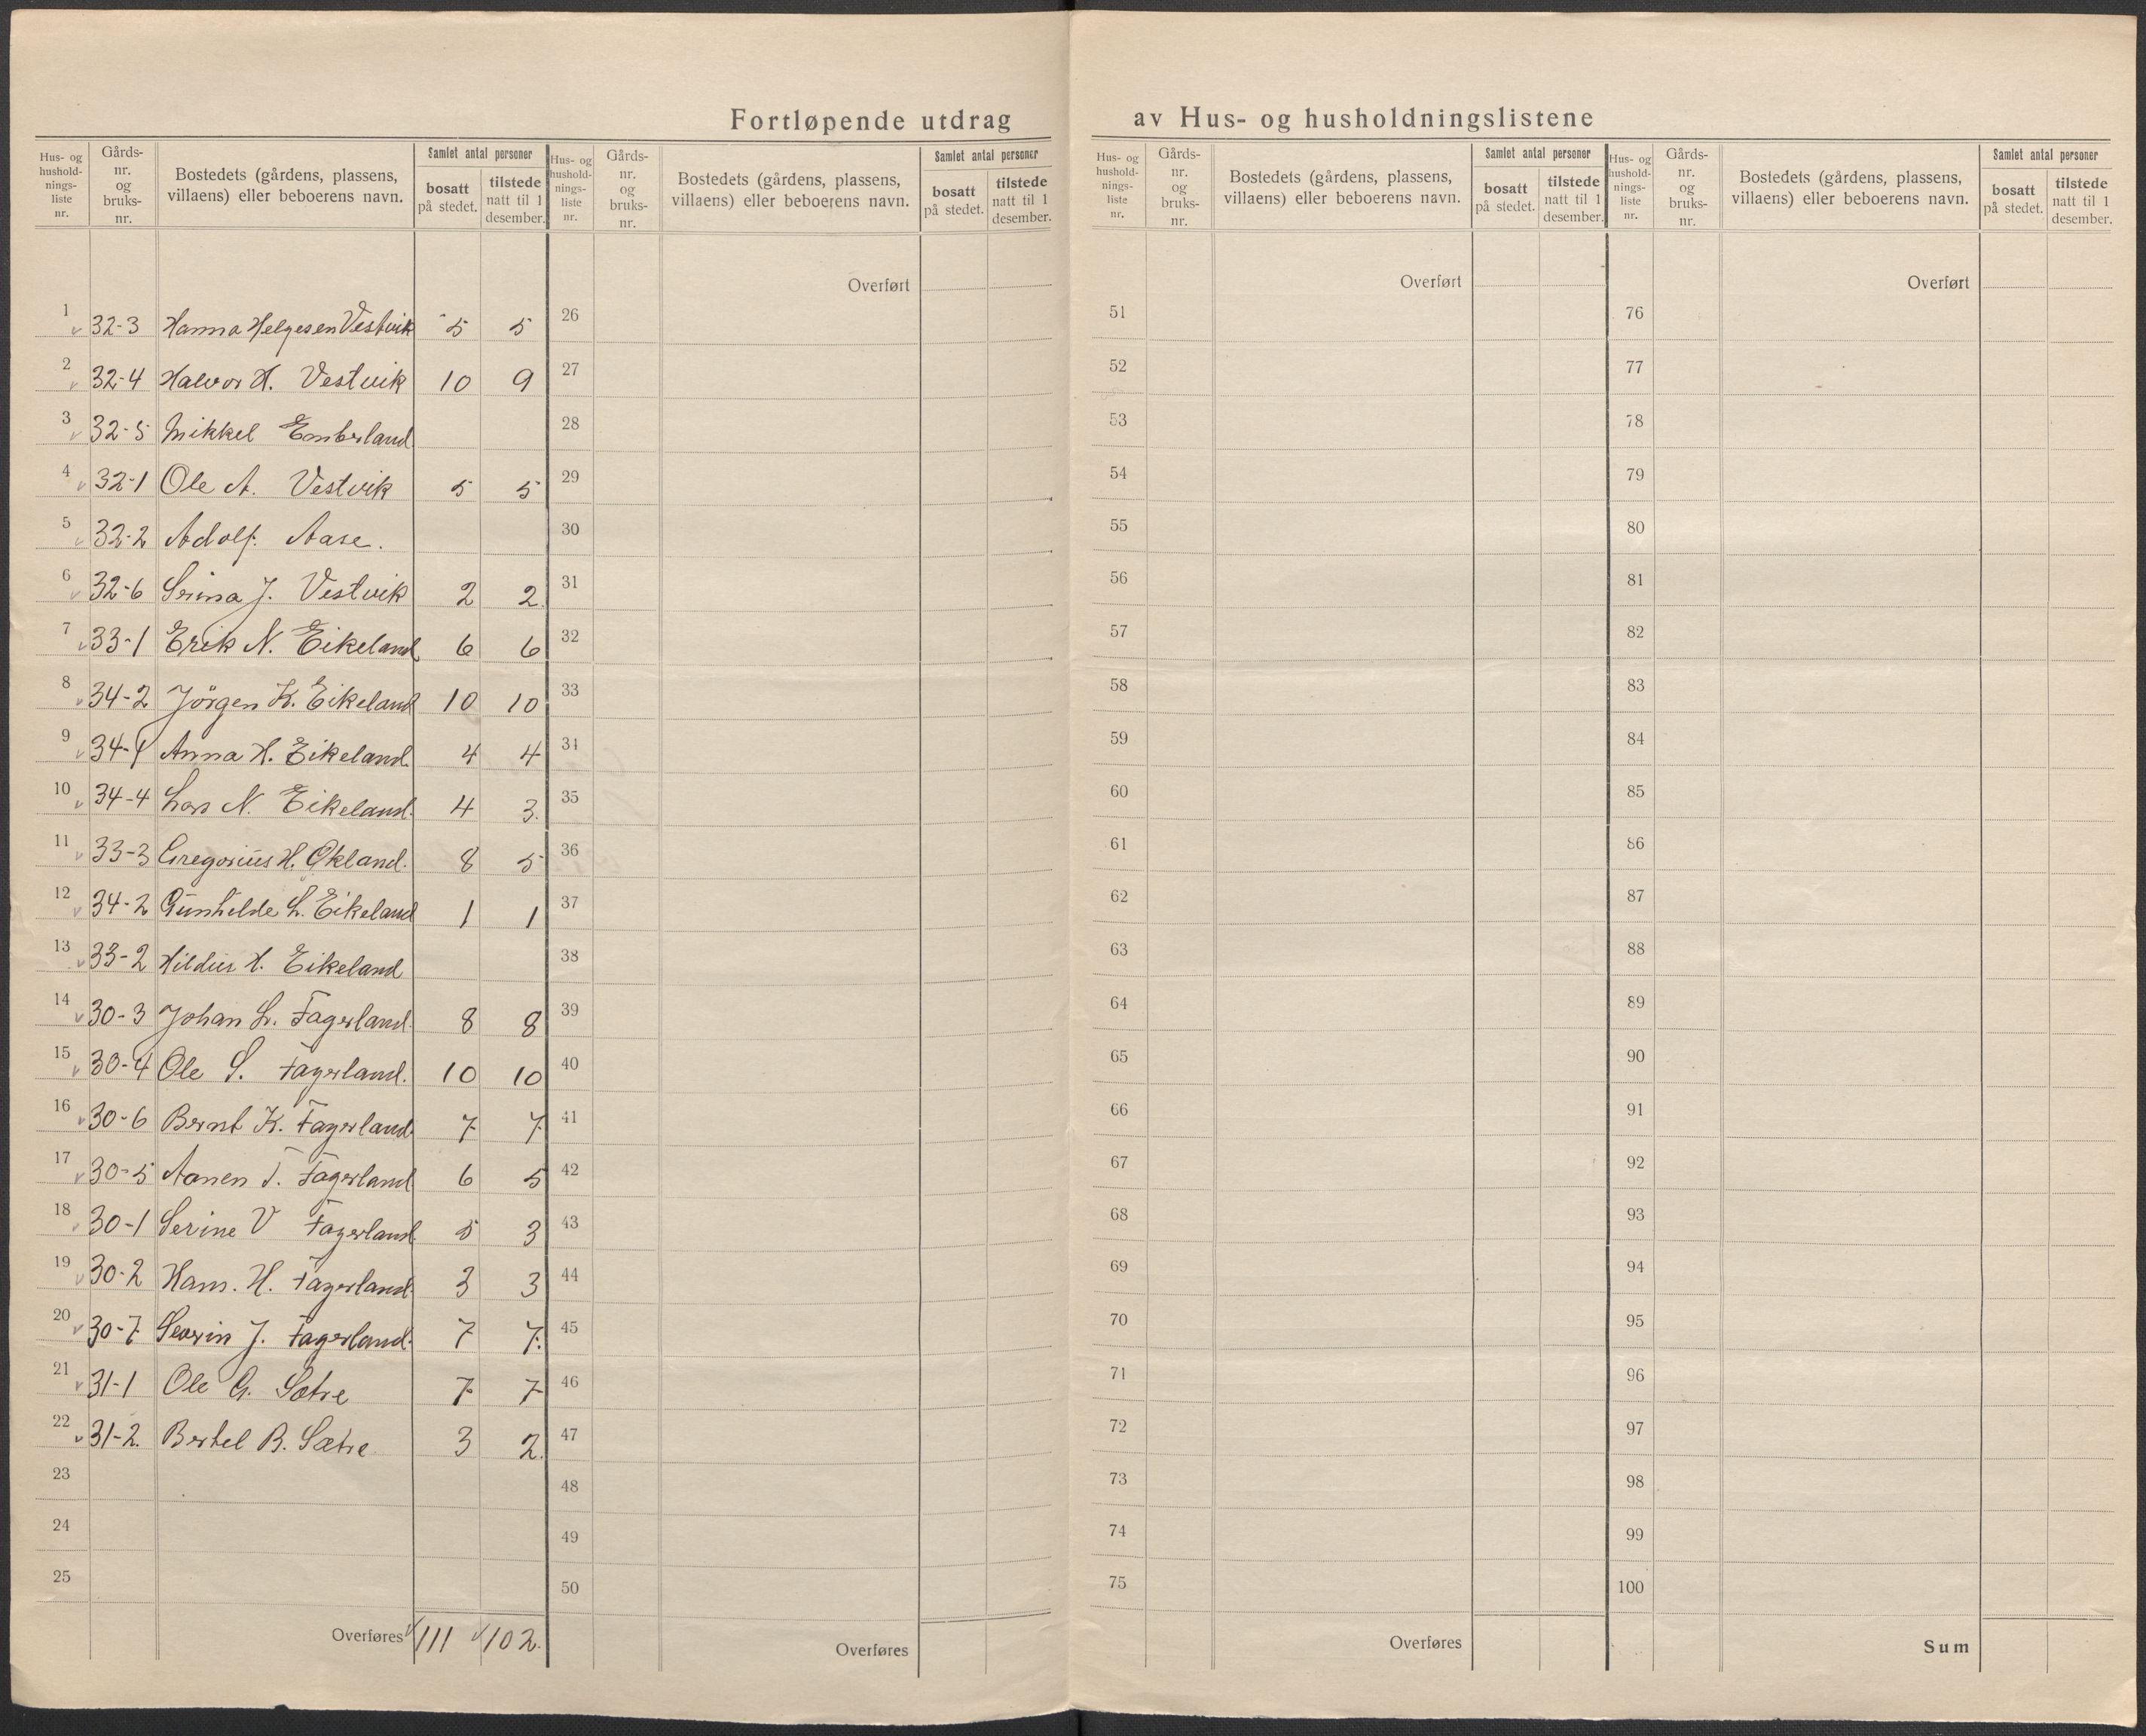 Fortløpende utdrag av Hus- og husholdningslistene
Hus- og hushold-nings-liste nr. Gårds-nr. og bruks-nr. Bostedets (gårdens, plassens, villaens) eller beboerens navn. Samlet antal personer bosatt på stedet. tilstede natt til 1 desember.
Hus- og hushold-nings-liste nr. Gårds-nr. og bruks-nr. Bostedets (gårdens, plassens, villaens) eller beboerens navn. Samlet antal personer bosatt på stedet. tilstede natt til 1 desember.
Hus- og hushold-nings-liste nr. Gårds-nr. og bruks-nr. Bostedets (gårdens, plassens, villaens) eller beboerens navn. Samlet antal personer bosatt på stedet. tilstede natt til 1 desember.
Hus- og hushold-nings-liste nr. Gårds-nr. og bruks-nr. Bostedets (gårdens, plassens, villaens) eller beboerens navn. Samlet antal personer bosatt på stedet. tilstede natt til 1 desember.
Overført Overført Overført
1 32-3 Hanna Helgesen Vestvik 5 5 26 51 76
2 32-4 Halvor H. Vestvik 10 9 27 52 77
3 32-5 Mikkel Emberland 28 53 78
4 32-1 Ole A. Vestvik 5 5 29 54 79
5 32-2 Adolf. Aase. 30 55 80
6 32-6 Serina J. Vestvik 2 2 31 56 81
7 33-1 Erik N. Eikeland 6 6 32 57 82
8 34-2 Jörgen K. Eikeland 10 10 33 58 83
9 34-1 Anna H. Eikeland. 4 4 34 59 84
10 34-4 Lars N. Eikeland. 4 3. 35 60 85
11 33-3 Gregorius H. Økland. 8 5 36 61 86
12 34-2 Gunhilde L. Eikeland 1 1 37 62 87
13 33-2 H. Eikeland 38 63 88
14 30-3 Johan L. Fagerland. 8 8 39 64 89
15 30-4 Ole S. Fagerland. 10 10 40 65 90
16 30-6 Bernt K. Fagerland 7 7 41 66 91
17 30-5 Aanen T. Fagerland 6 5 42 67 92
18 30-1 Serine V Fagerland. 5 3 43 68 93
19 30-2 Hans. H. Fagerland. 3 3 44 69 94
20 30-7 Severin J. Fagerland. 7 7. 45 70 95
21 31-1 Ole G. Sætre 7 7 46 71 96
22 31-2. Bertel B. Sætre 3 2. 47 72 97
23 48 73 98
24 49 74 99
25 50 75 100
Overføres 111 102. Overføres Overføres Sum